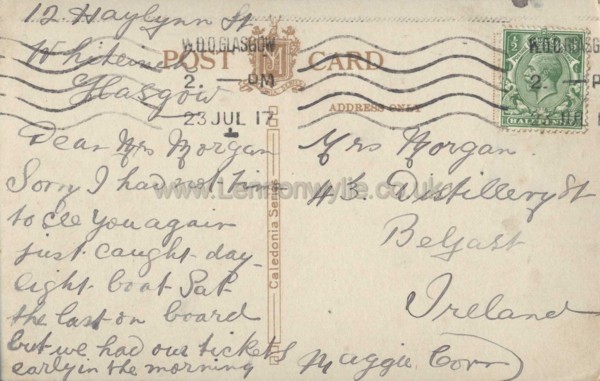 12 Haylynn St
Whiteinch
Glasgow
W.D.O. GLASGOW
2. — PM
23 JUL 17
POST CARD
ADDRESS ONLY
W.D.O. GLASG
2. — P
HALFPENNY
Dear Mrs Morgan
Sorry I had not time
to see you again
just caught day-
light boat Sat
the last on board
but we had our tickets
early in the morning
Caledonia Series
www.Lennonwylie.co.uk
Mrs Morgan
43. Distillery St
Belfast
Ireland
Maggie Corr